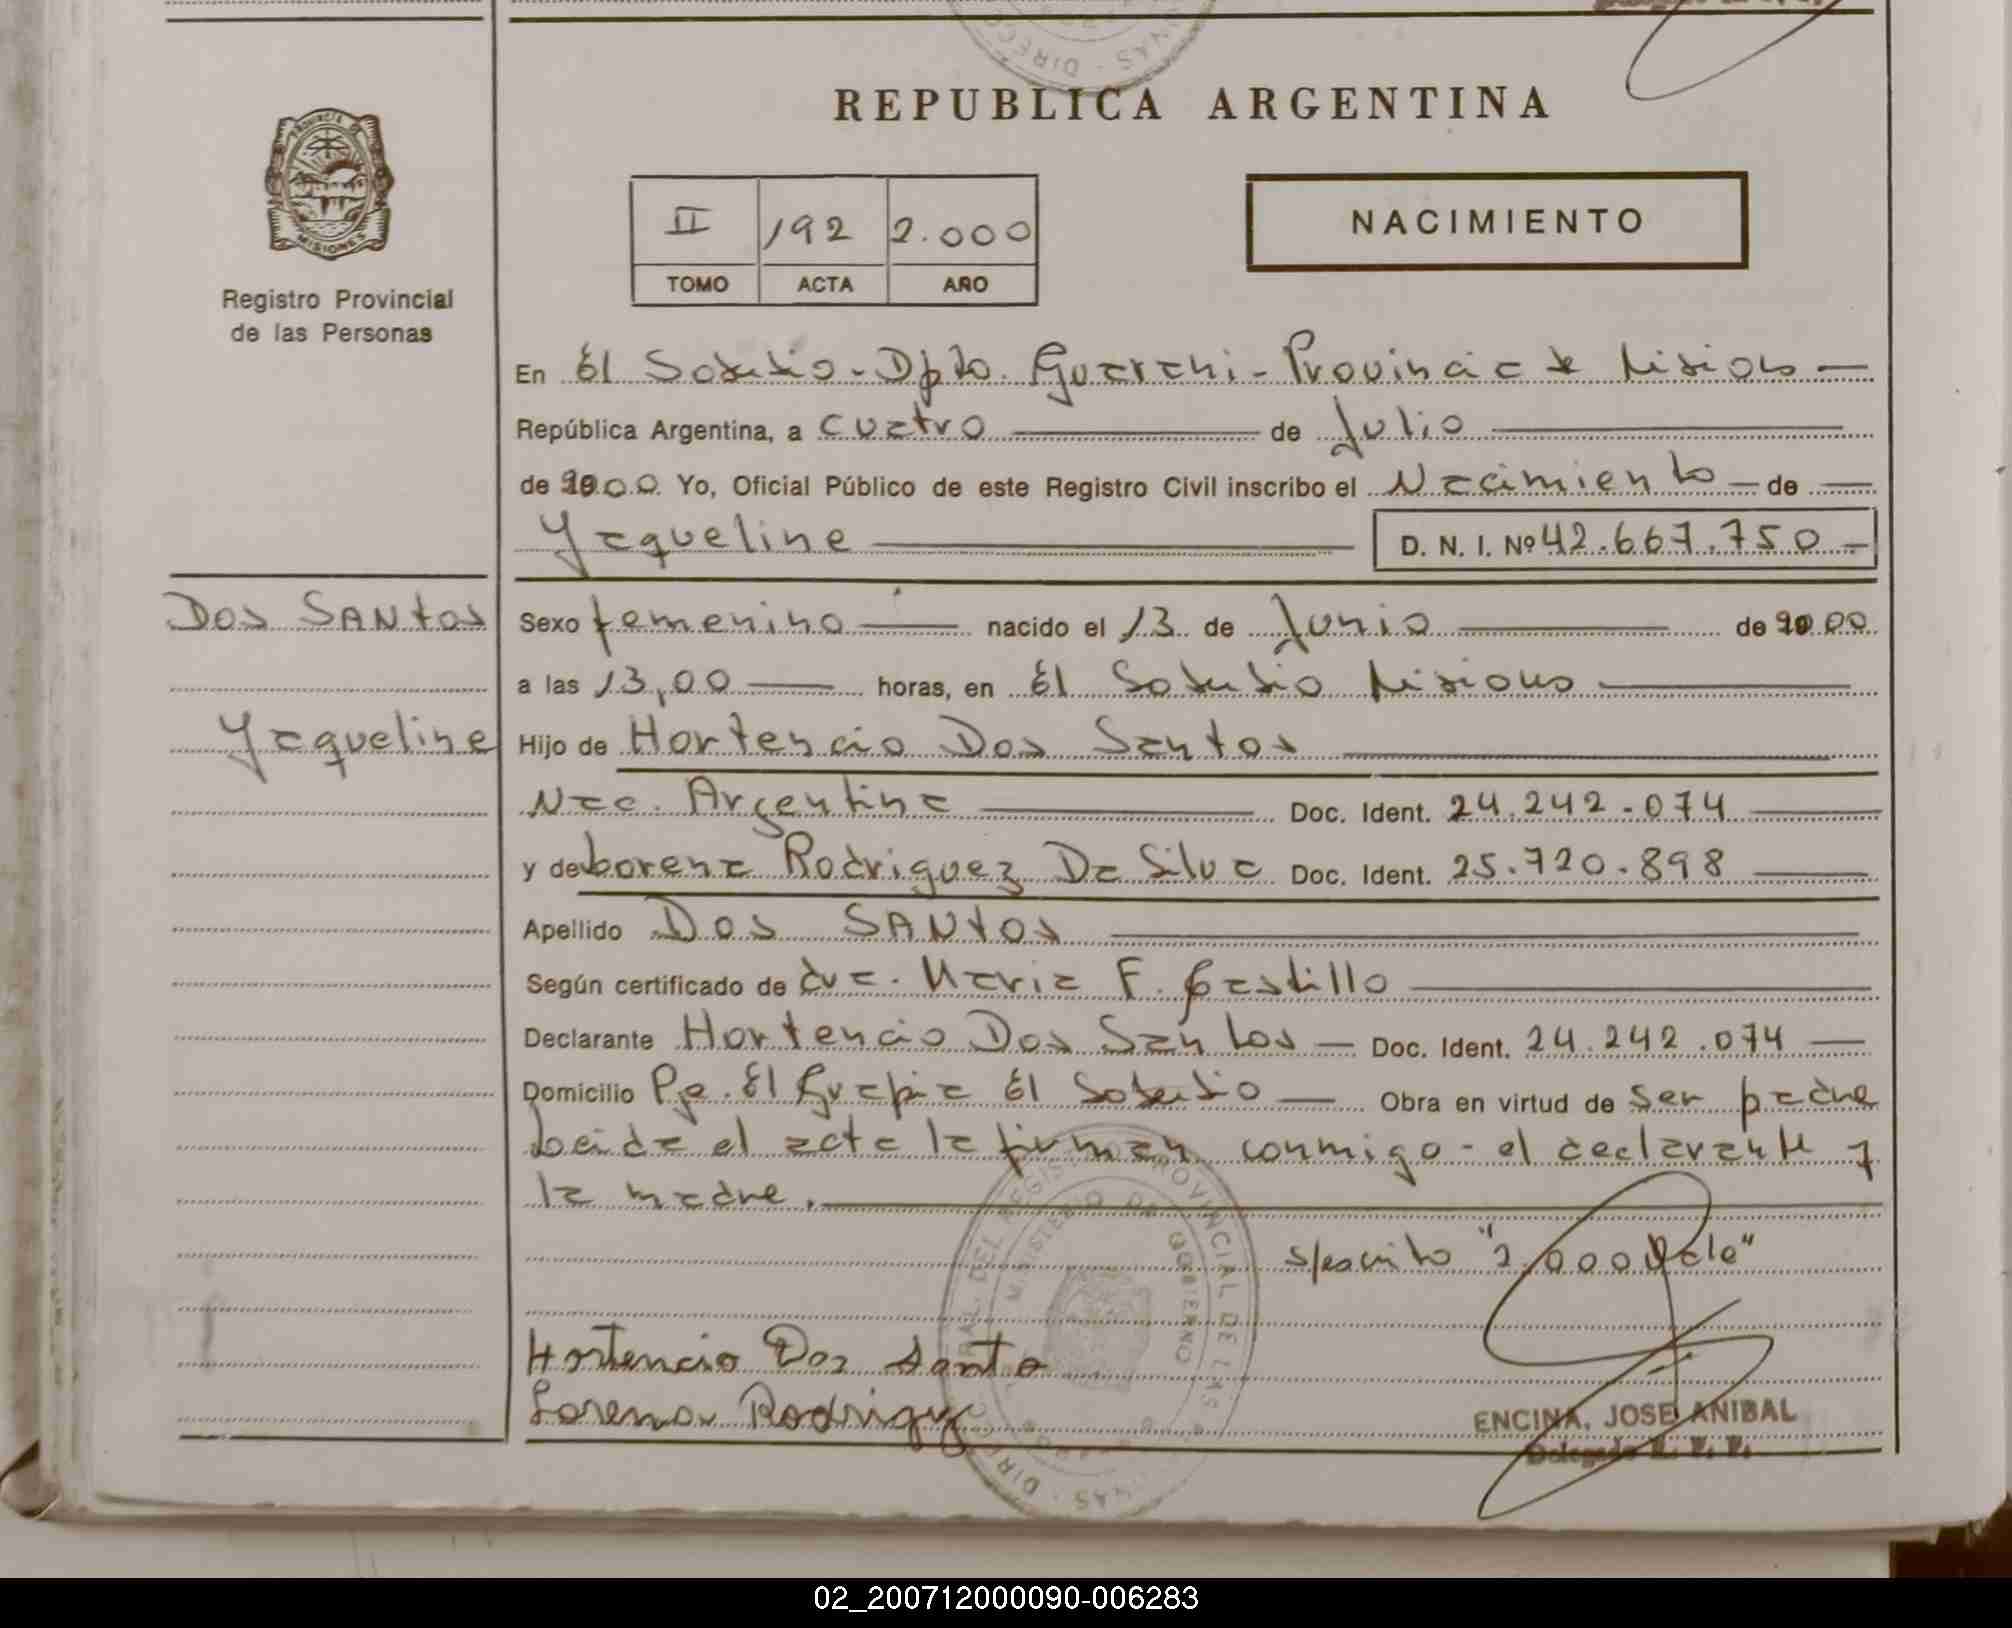 REPUBLICA ARGENTINA
PROVINCIA DE
MISIONES
Registro Provincial
de las Personas
II 192 2.000
TOMO ACTA AÑO
NACIMIENTO
En El Soberbio - Dpto. Guarani - Provincia de Misiones
República Argentina, a cuatro de Julio
de 2000 Yo, Oficial Público de este Registro Civil inscribo el Nacimiento de
Yaqueline D. N. I. Nº 42.667.750
Dos SANtos
Yaqueline
Sexo femenino nacido el 13 de Junio de 2000
a las 13,00 horas, en El Soberbio Misiones
Hijo de Hortencio Dos Santos
Nac. Argentina Doc. Ident. 24.242.074
y de Lorena Rodriguez Da Silva Doc. Ident. 25.720.898
Apellido Dos SANtos
Según certificado de Maria F. Castillo
Declarante Hortencio Dos Santos Doc. Ident. 24.242.074
Domicilio El Soberbio Obra en virtud de ser padre
Leida el acta la firman conmigo - el declarante y
la madre.
s/escrito "2.000 Vale"
Hortencio Dos Santo
Lorena Rodriguez
ENCINA, JOSE ANIBAL
Delegado R. P. P.
MINISTERIO DE GOBIERNO
02_200712000090-006283